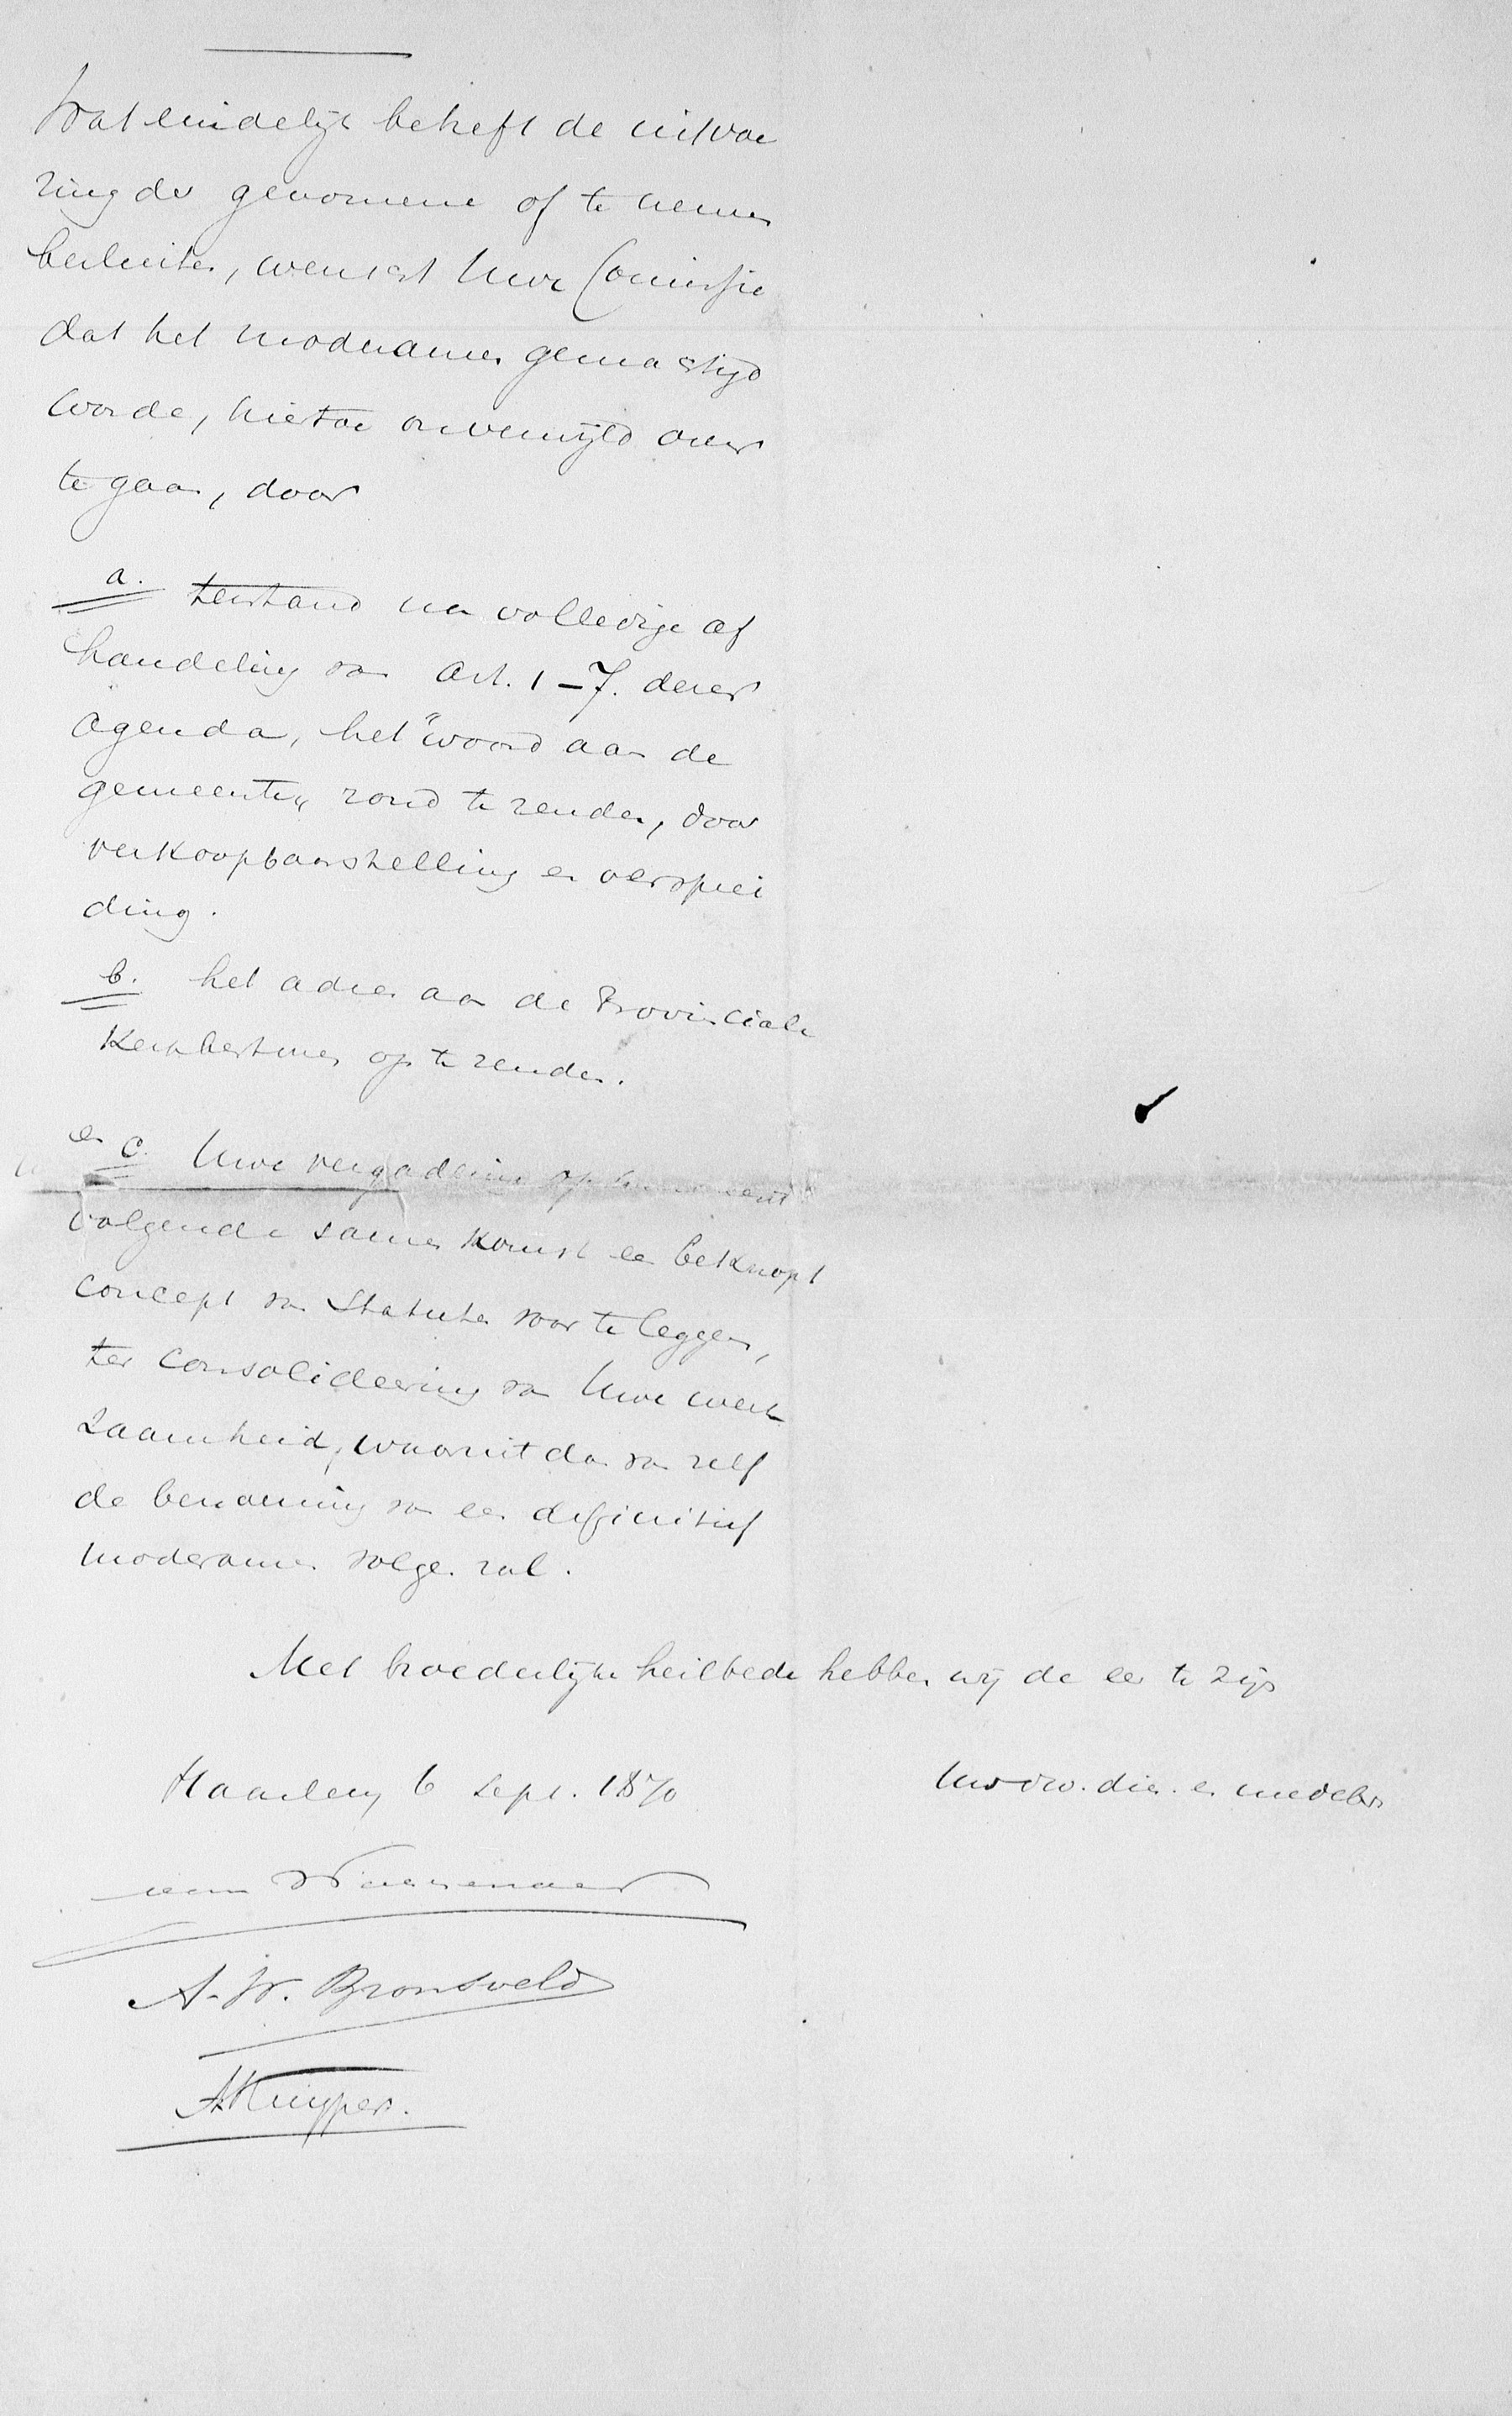 Wat eindelijk betreft de uitvoe
ring der genomene of te nemen
besluiten, wenscht Uwe Comissie
dat het moderamen gemachtigd
worde, hiertoe onverwijld over
te gaan, door
a. terstond na volledige af
handeling van Art. 1-7. dezer
agenda, het "woord aan de
gemeenten" rond te zenden, door
verkoopbaarstelling en versprei
ding.
b. het adres aan de Provinciale
Kerkbesturen op te zenden.
en c. Uwe vergadering op hare eerst
volgende samenkomst een beknopt
concept van Statuten voor te leggen,
ter consolideering van Uwe werk
zaamheid, waaruit dan van zelf
de benoeming van een definitief
moderamen volgen zal.
Met broederlijke heilbede hebben wij de eer te zijn
Haarlem 6 Sept. 1870
Uw dw. dien. en medebrs
van Wassenaer
A. W. Bronsveld
A Kuyper.